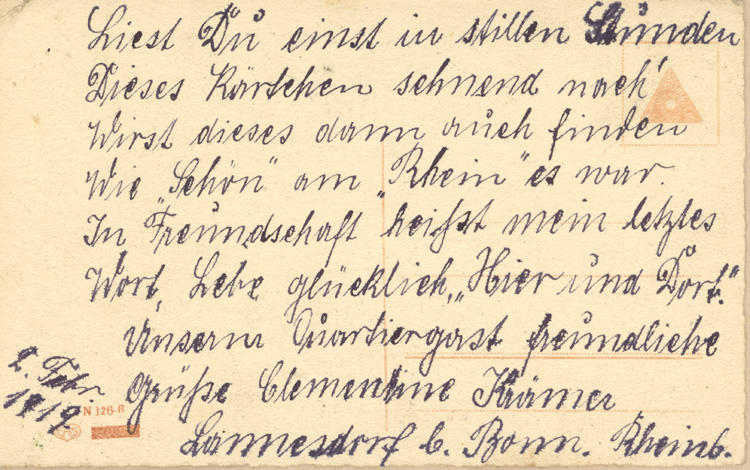 Liest Du einst in stillen Stunden
Dieses Kärtchen sehnend nach'
Wirst dieses dann auch finden
Wie „Schön“ am „Rhein“ es war.
In Freundschaft heißt mein letztes
Wort, Lebe glücklich „Hier und Dort.“
Unserm Quartiergast freundliche
Grüße Clementine Krämer
Lannesdorf b. Bonn. Rheinb.
2. Febr.
1919.
N 126-6